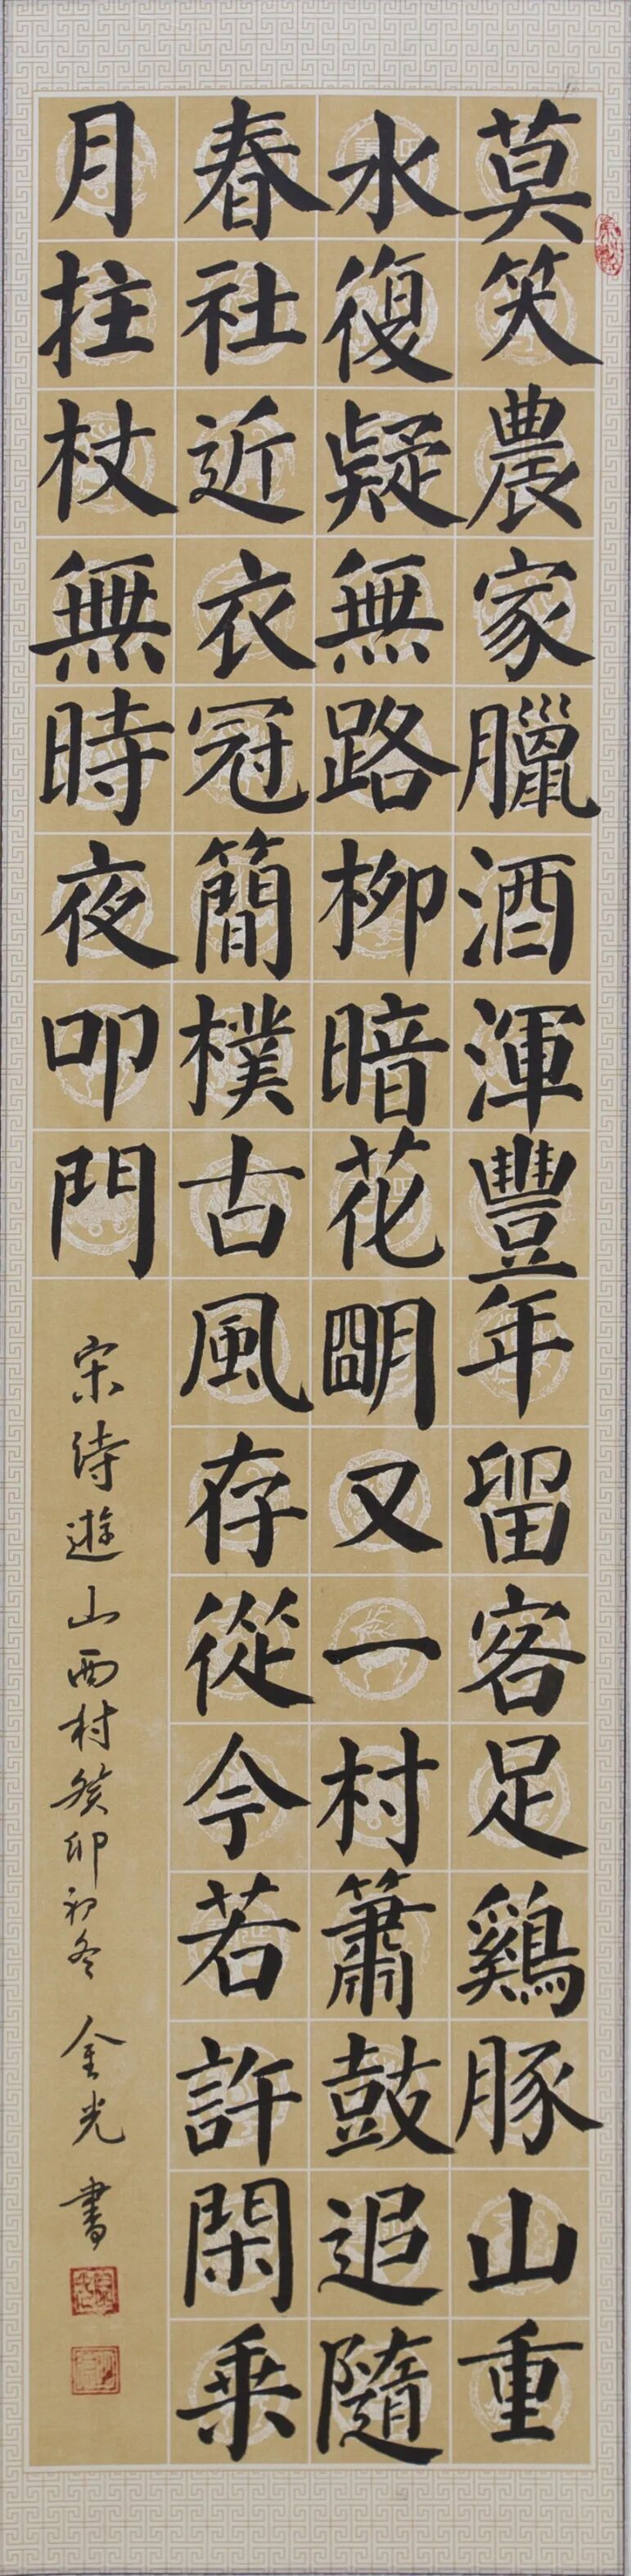 莫笑農家臘酒渾豐年留客足鷄豚山重
水復疑無路柳暗花明又一村簫鼓追隨
春社近衣冠簡樸古風存從今若許閑乗
月拄杖無時夜叩門
宋詩遊山西村癸卯初冬 金光書